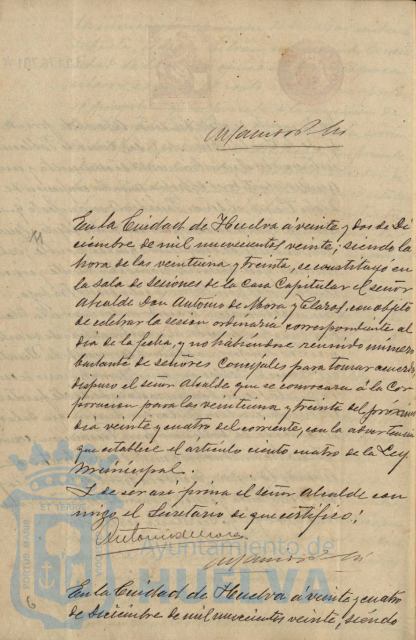 En la Ciudad de Huelva á veinte y dos de Di
ciembre de mil novecientos veinte; siendo la
hora de las veintiuna y treinta, se constituyó en
la sala de sesiones de la Casa Capitular el señor
Alcalde Don Antonio de Mora y Claros, con objeto
de celebrar la sesion ordinaria correspondiente al
dia de la fecha, y no habiendose reunido número
bastante de señores Concejales para tomar acuerdo,
dispuso el señor Alcalde que se convocara á la Cor
poracion para las veintiuna y treinta del próximo
dia veinte y cuatro del corriente, con la advertencia
que establece el artículo ciento cuatro de la Ley
Municipal.
Y de ser así firma el señor Alcalde con
migo el Secretario de que certifico;
Antonio de Mora
Ayuntamiento de
HUELVA
En la Ciudad de Huelva á veinte y cuatro
de Diciembre de mil novecientos veinte, siendo